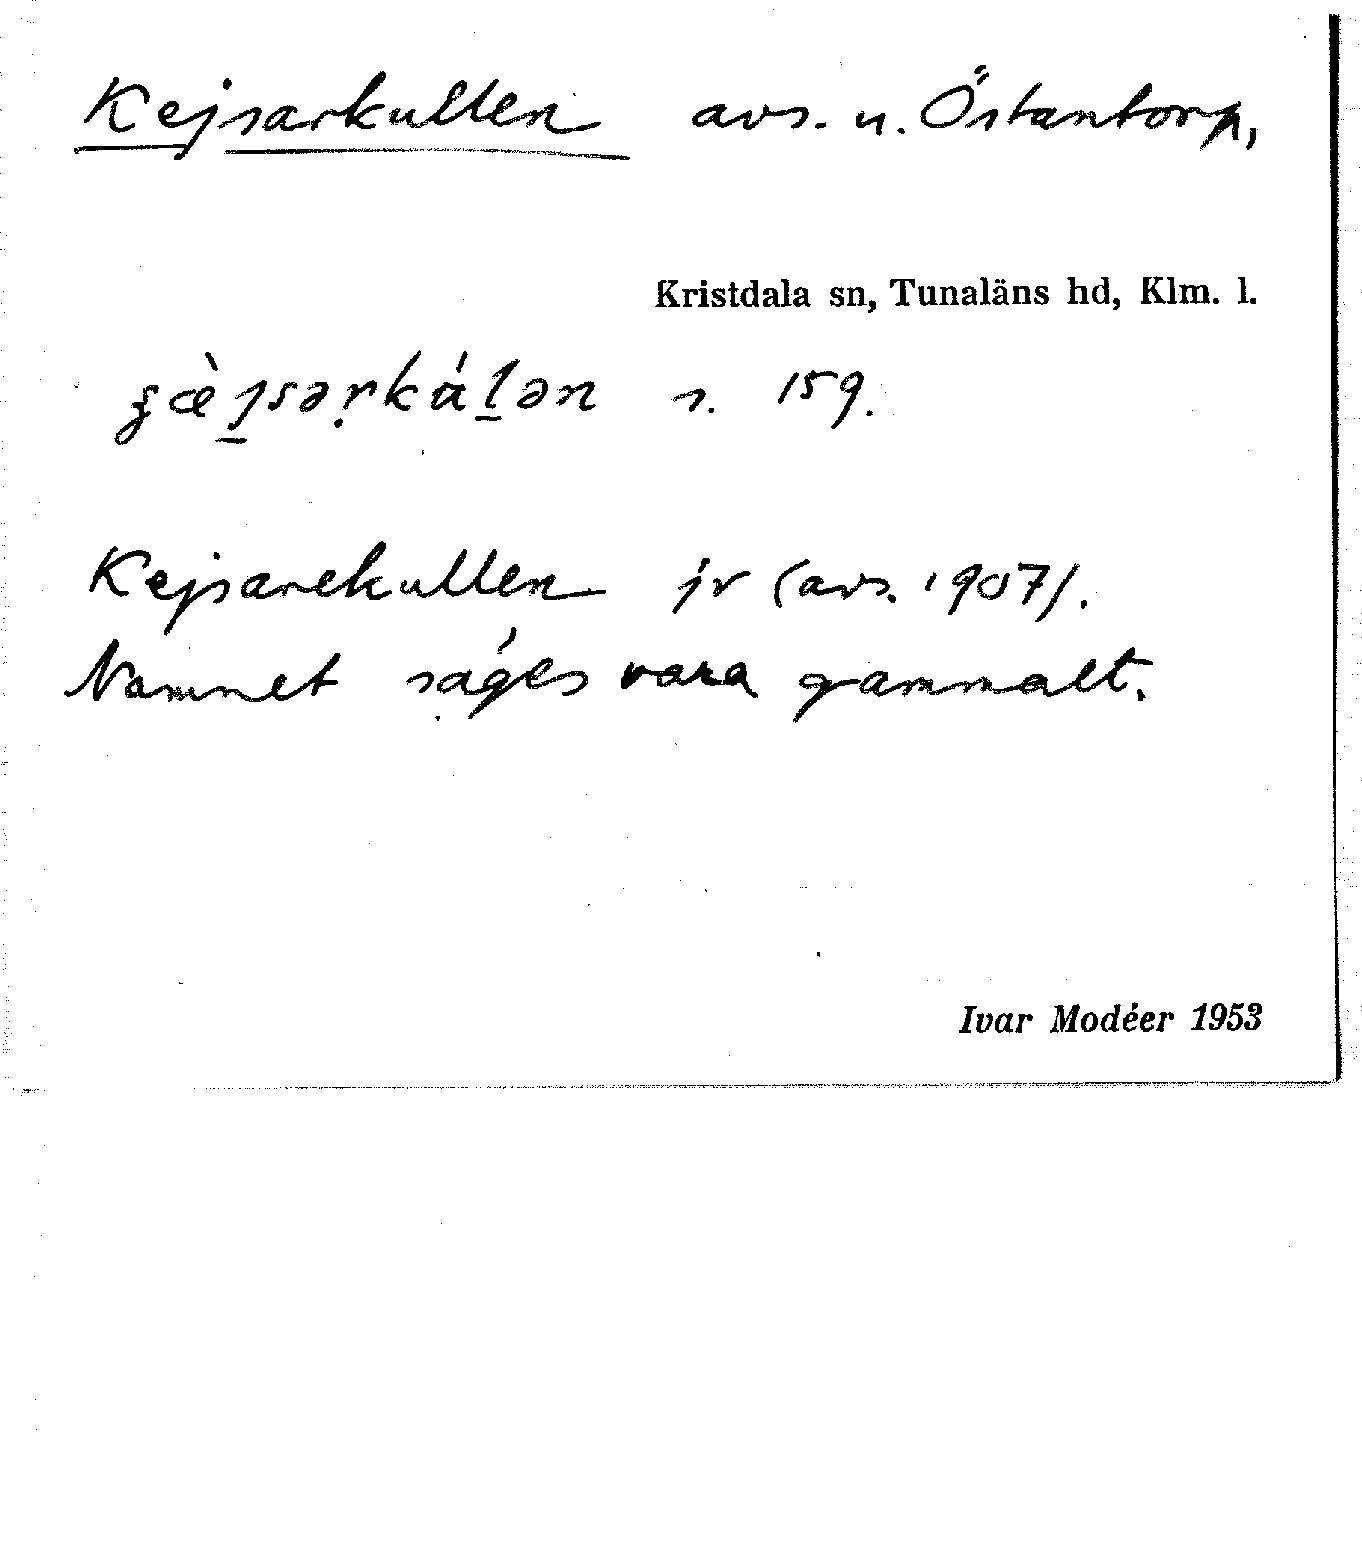 Kejsarkullen avs. u. Östantorp,
Kristdala sn, Tunaläns hd, Klm. l.
s. 159.
Kejsarekullen jr (avs. 1907).
Namnet såges vara gammalt.
Ivar Modéer 1953